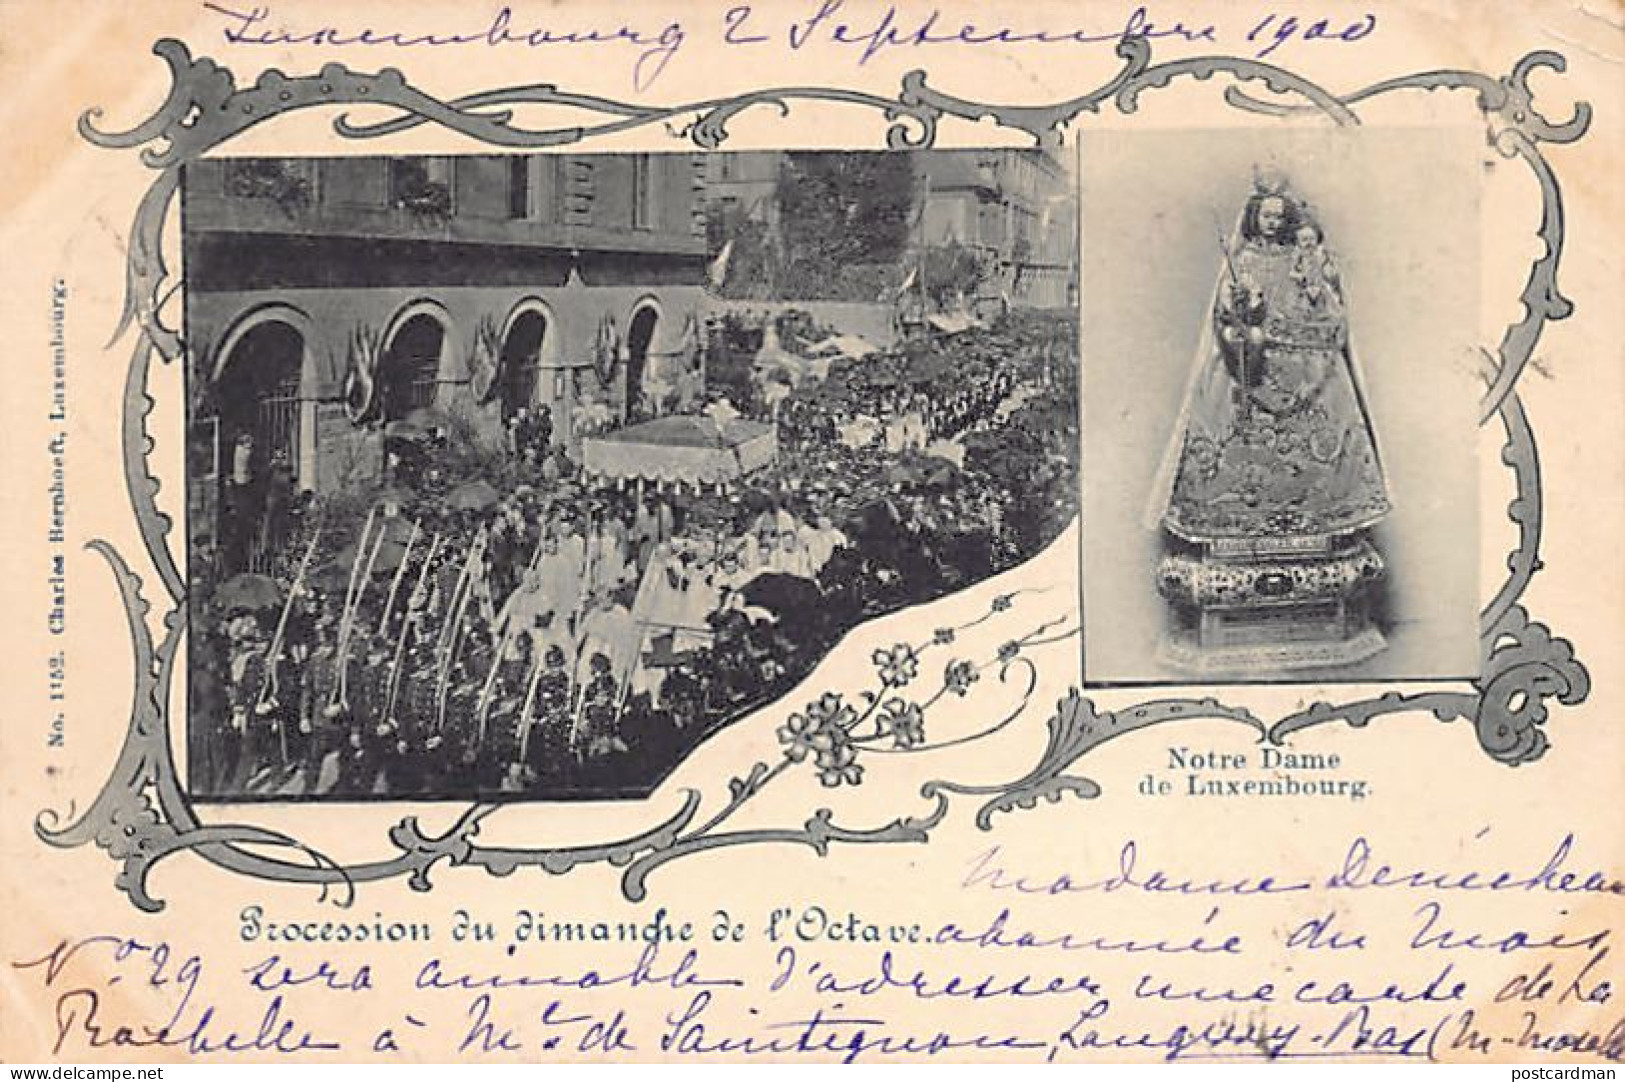 Luxembourg 2 Septembre 1900
No. 1152. Charles Bernhoeft, Luxembourg.
Notre Dame
de Luxembourg.
Procession du dimanche de l'Octave.
Madame Denécheau
abonnée du Mois,
N.o 29 sera aimable d'adresser une carte de La
Rochelle à Mr. de Saintignon, Longwy-Bas (M-Moselle
delcampe.net
postcardman